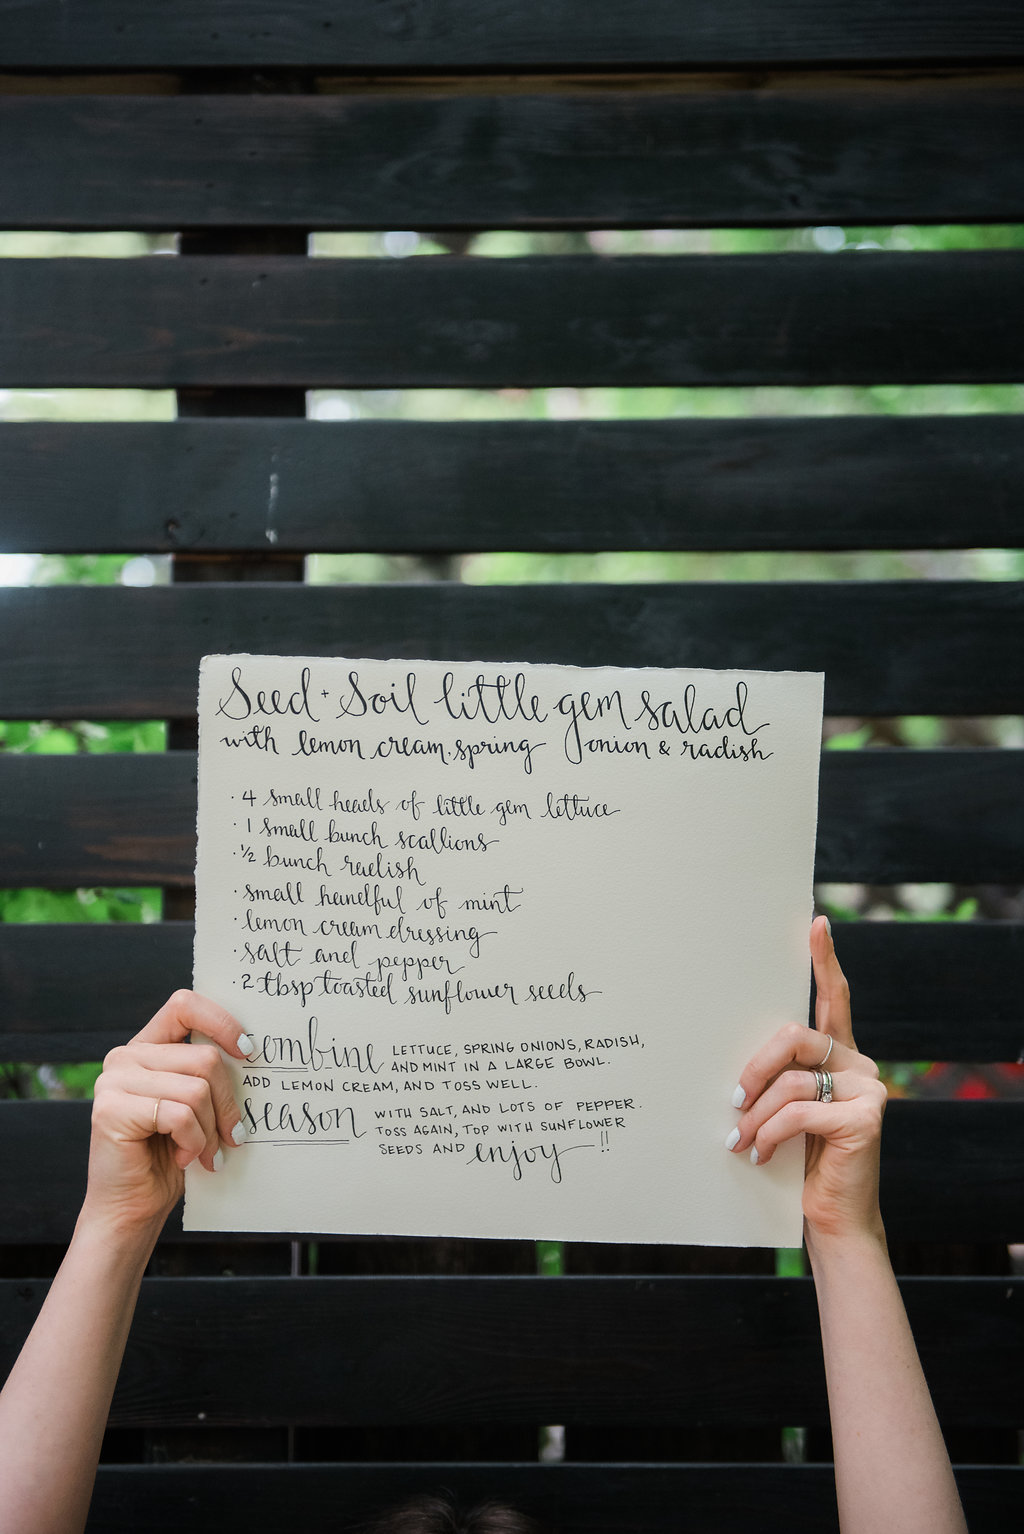 Seed + Soil little gem salad
with lemon cream, spring onion & radish
· 4 small heads of little gem lettuce
· 1 small bunch scallions
· ½ bunch radish
· small handful of mint
· lemon cream dressing
· salt and pepper
· 2 tbsp toasted sunflower seeds
combine LETTUCE, SPRING ONIONS, RADISH,
AND MINT IN A LARGE BOWL.
ADD LEMON CREAM, AND TOSS WELL.
season WITH SALT, AND LOTS OF PEPPER.
TOSS AGAIN, TOP WITH SUNFLOWER
SEEDS AND enjoy!!